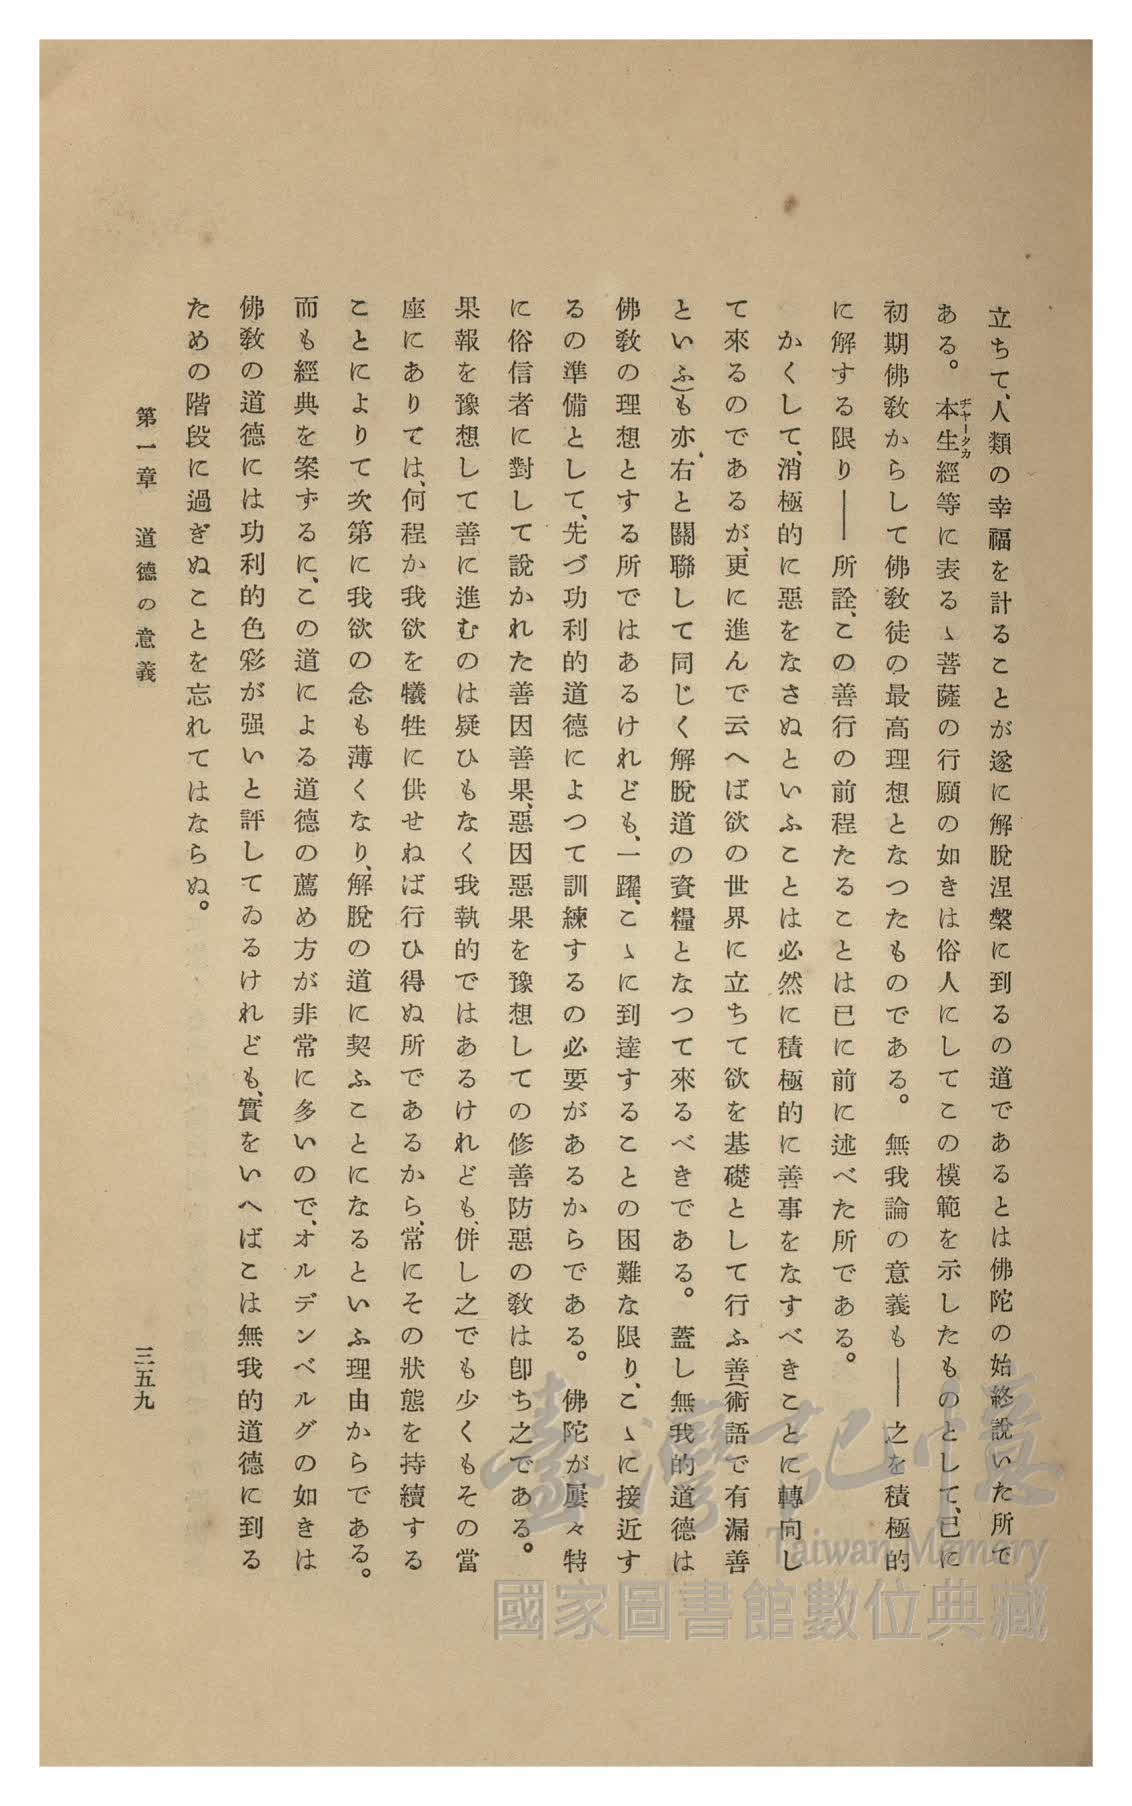 立ちて、人類の幸福を計ることが遂に解脫涅槃に到るの道であるとは佛陀の始終說いた所で
ある。本生經等に表るゝ菩薩の行願の如きは俗人にしてこの模範を示したものとして、已に
ヂャータカ
初期佛敎からして佛敎徒の最高理想となつたものである。無我論の意義も――之を積極的
に解する限り――所詮、この善行の前程たることは已に前に述べた所である。
かくして、消極的に惡をなさぬといふことは必然に積極的に善事をなすべきことに轉向し
て來るのであるが、更に進んで云へば欲の世界に立ちて欲を基礎として行ふ善(術語で有漏善
といふ)も亦、右と關聯して同じく解脫道の資糧となつて來るべきである。蓋し無我的道德は
佛敎の理想とする所ではあるけれども、一躍、こゝに到達することの困難な限り、こゝに接近す
るの準備として、先づ功利的道德によつて訓練するの必要があるからである。佛陀が屢々特
に俗信者に對して說かれた善因善果、惡因惡果を豫想しての修善防惡の敎は卽ち之である。
果報を豫想して善に進むのは疑ひもなく我執的ではあるけれども、併し之でも少くもその當
座にありては、何程か我欲を犧牲に供せねば行ひ得ぬ所であるから、常にその狀態を持續する
ことによりて次第に我欲の念も薄くなり、解脫の道に契ふことになるといふ理由からである。
而も經典を案ずるに、この道による道德の薦め方が非常に多いので、オルデンベルグの如きは
佛敎の道德には功利的色彩が强いと評してゐるけれども、實をいへばこは無我的道德に到る
ための階段に過ぎぬことを忘れてはならぬ。
第一章　道德の意義
三五九
臺灣記憶
Taiwan Memory
國家圖書館數位典藏